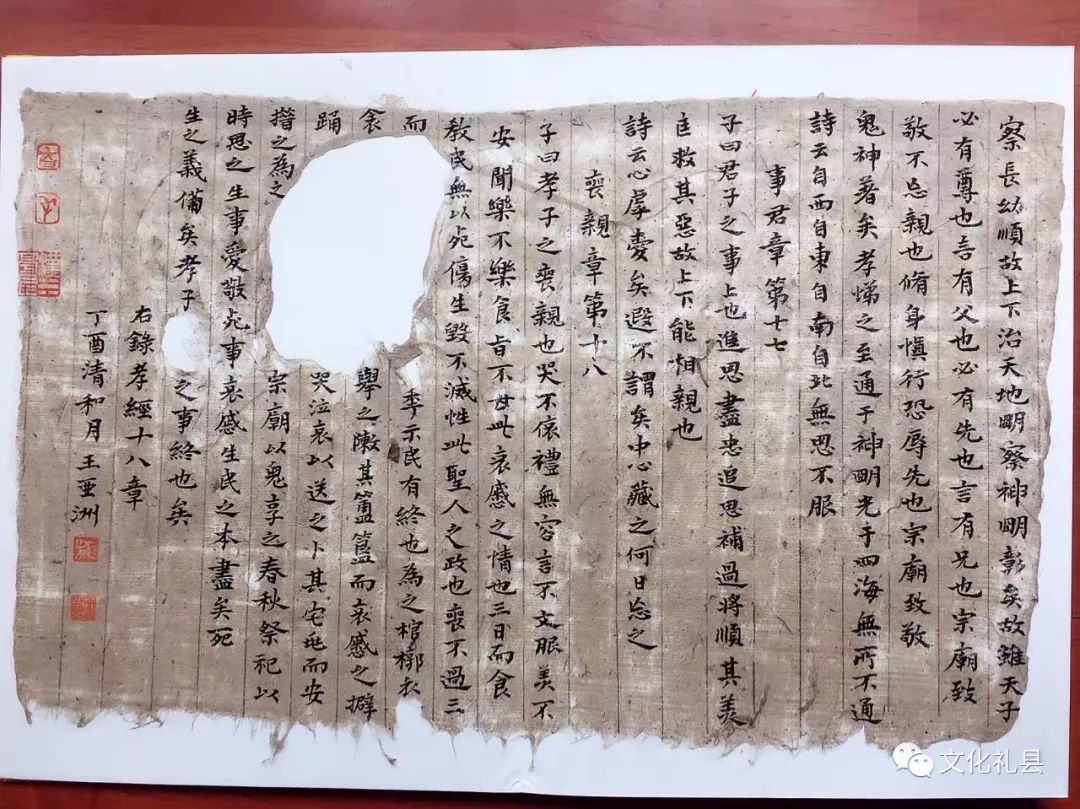 察長幼順故上下治天地明察神明彰矣故雖天子
必有尊也言有父也必有先也言有兄也宗廟致
敬不忘親也脩身慎行恐辱先也宗廟致敬
鬼神著矣孝悌之至通于神明光于四海無所不通
詩云自西自東自南自北無思不服
事君章第十七
子曰君子之事上也進思盡忠退思補過將順其美
匡救其惡故上下能相親也
詩云心乎愛矣遐不謂矣中心藏之何日忘之
喪親章第十八
子曰孝子之喪親也哭不偯禮無容言不文服美不
安聞樂不樂食旨不甘此哀慼之情也三日而食
教民無以死傷生毀不滅性此聖人之政也喪不過三
而 季示民有終也為之棺槨衣
衾 舉之陳其簠簋而哀慼之擗
踊 哭泣哀以送之卜其宅兆而安
措之為之 宗廟以鬼享之春秋祭祀以
時思之生事愛敬死事哀慼生民之本盡矣死
生之義備矣孝子 之事終也矣
右錄孝經十八章
丁酉清和月王亞洲
文化礼县